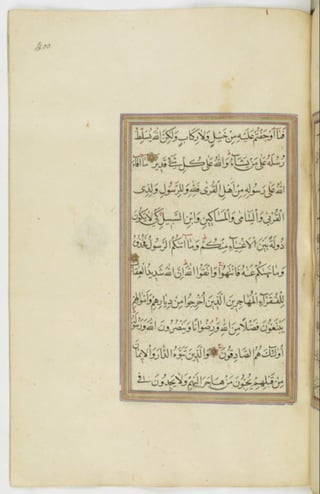 400
فَمَا أَوْجَفْتُمْ عَلَيْهِ مِنْ خَيْلٍ وَلَا رِكَابٍ وَلَكِنَّ اللّٰهَ يُسَلِّطُ
رُسُلَهُ عَلَى مَنْ يَشَاءُ وَاللّٰهُ عَلَى كُلِّ شَيْءٍ قَدِيرٌ مَا أَفَاءَ
اللّٰهُ عَلَى رَسُولِهِ مِنْ أَهْلِ الْقُرَى فَلِلّٰهِ وَلِلرَّسُولِ وَلِذِى
الْقُرْبَى وَالْيَتَامَى وَالْمَسَاكِينِ وَابْنِ السَّبِيلِ كَىْ لَا يَكُونَ
دُولَةً بَيْنَ الْأَغْنِيَاءِ مِنْكُمْ وَمَا آتَيكُمُ الرَّسُولُ فَخُذُوهُ
وَمَا نَهَيكُمْ عَنْهُ فَانْتَهُوا وَاتَّقُوا اللّٰهَ إِنَّ اللّٰهَ شَدِيدُ الْعِقَابِ
لِلْفُقَرَاءِ الْمُهَاجِرِينَ الَّذِينَ أُخْرِجُوا مِنْ دِيَارِهِمْ وَأَمْوَالِهِمْ
يَبْتَغُونَ فَضْلًا مِنَ اللّٰهِ وَرِضْوَانًا وَيَنْصُرُونَ اللّٰهَ وَرَسُولَهُ
أُولَئِكَ هُمُ الصَّادِقُونَ وَالَّذِينَ تَبَوَّؤُ الدَّارَ وَالْإِيمَانَ
مِنْ قَبْلِهِمْ يُحِبُّونَ مَنْ هَاجَرَ إِلَيْهِمْ وَلَا يَجِدُونَ فِى